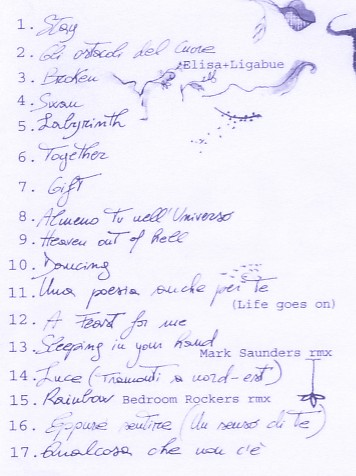 1. Stay
2. Gli ostacoli del Cuore
Elisa+Ligabue
3. Broken
4. Swan
5. Labyrinth
6. Together
7. Gift
8. Almeno tu nell'Universo
9. Heaven out of hell
10. Dancing
11. Una poesia anche per te
(Life goes on)
12. A Feast for me
13. Sleeping in your hand
Mark Saunders rmx
14. Luce (Tramonti a nord-est)
15. Rainbow Bedroom Rockers rmx
16. Eppure sentire (Un senso di te)
17. Qualcosa che non c'è